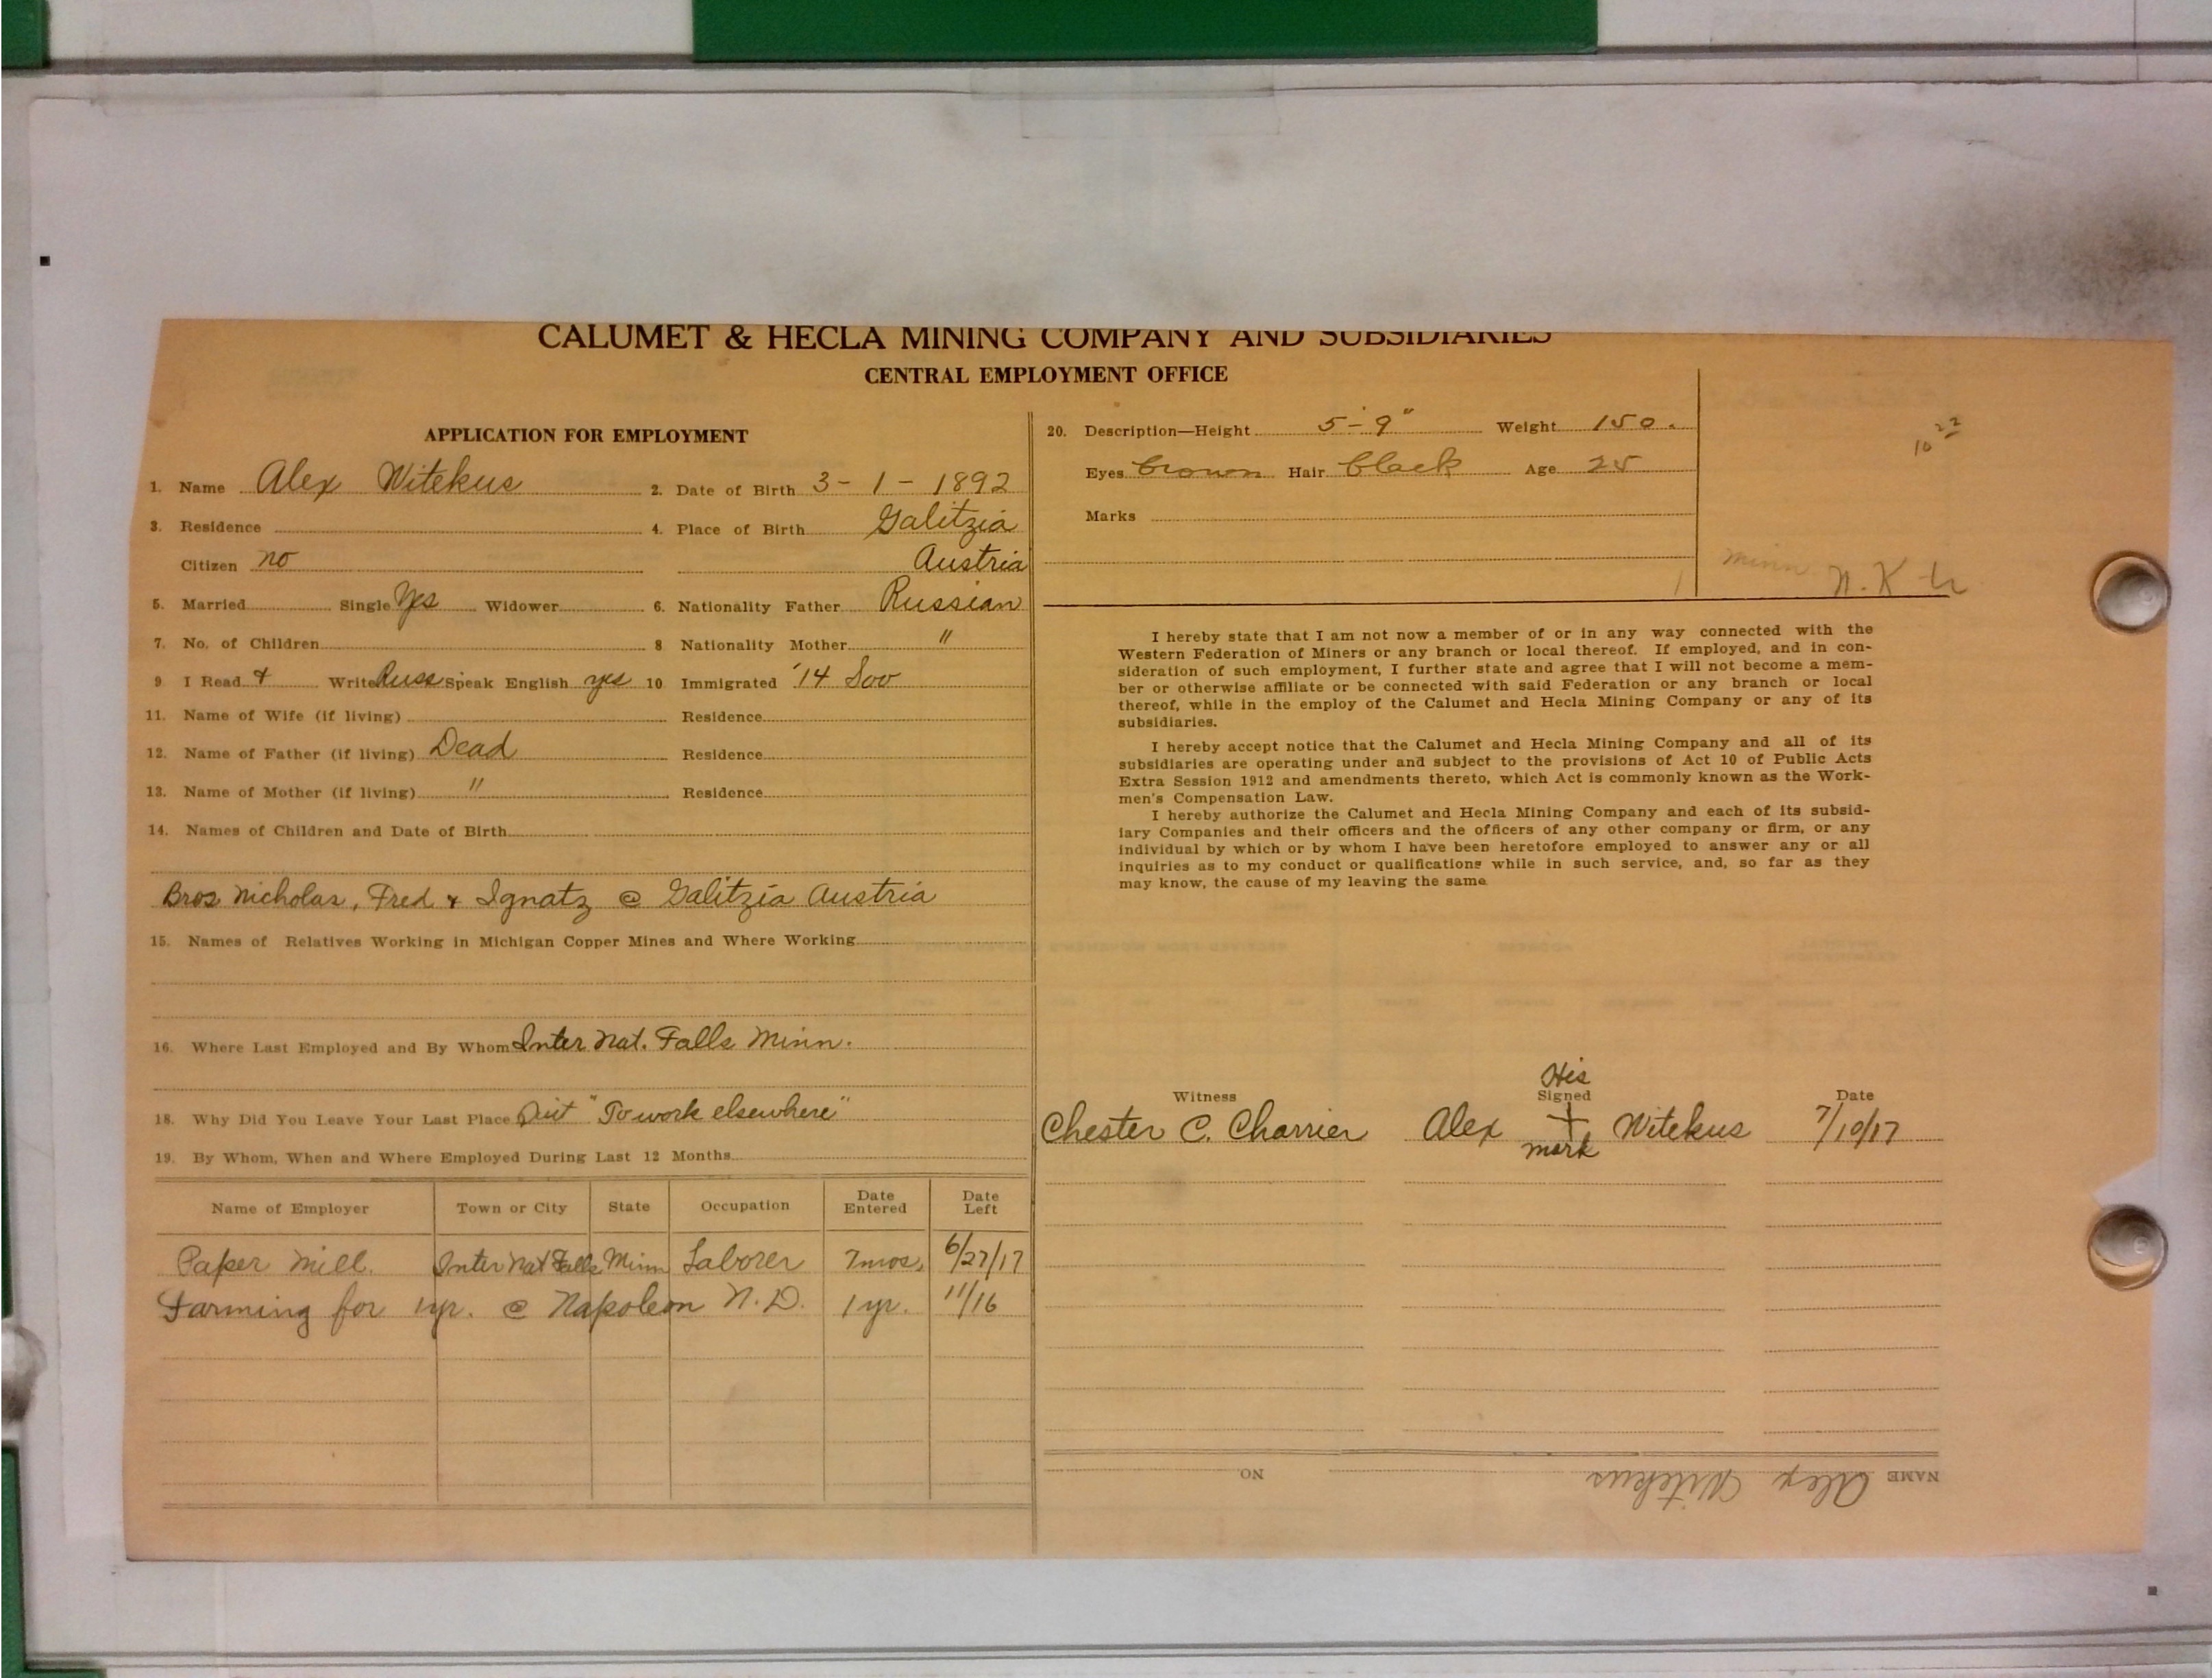 CALUMET & HECLA MINING COMPANY AND SUBSIDIARIES
CENTRAL EMPLOYMENT OFFICE
APPLICATION FOR EMPLOYMENT
1. Name Alex Witekus 2. Date of Birth 3 - 1 - 1892
3. Residence 4. Place of Birth Galitzia
Citizen no Austria
5. Married Single Yes Widower 6. Nationality Father Russian
7. No. of Children 8 Nationality Mother "
9 I Read & Write Russ Speak English yes 10 Immigrated '14 Soo
11. Name of Wife (if living) Residence
12. Name of Father (if living) Dead Residence
13. Name of Mother (if living) " Residence
14. Names of Children and Date of Birth
Bros Nicholas, Fred & Ignatz @ Galitzia Austria
15. Names of Relatives Working in Michigan Copper Mines and Where Working
16. Where Last Employed and By Whom Inter Nat. Falls Minn.
18. Why Did You Leave Your Last Place Quit "To work elsewhere"
19. By Whom, When and Where Employed During Last 12 Months
Name of Employer Town or City State Occupation Date Entered Date Left
Paper Mill. Inter Nat Falls Minn Laborer 7mos. 6/27/17
Farming for 1yr. @ Napoleon N.D. 1 yr. 11/16
20. Description—Height 5'-9" Weight 150.
Eyes brown Hair black Age 25
Marks
10 22
Minn N.K
I hereby state that I am not now a member of or in any way connected with the
Western Federation of Miners or any branch or local thereof. If employed, and in con-
sideration of such employment, I further state and agree that I will not become a mem-
ber or otherwise affiliate or be connected with said Federation or any branch or local
thereof, while in the employ of the Calumet and Hecla Mining Company or any of its
subsidiaries.
I hereby accept notice that the Calumet and Hecla Mining Company and all of its
subsidiaries are operating under and subject to the provisions of Act 10 of Public Acts
Extra Session 1912 and amendments thereto, which Act is commonly known as the Work-
men's Compensation Law.
I hereby authorize the Calumet and Hecla Mining Company and each of its subsid-
iary Companies and their officers and the officers of any other company or firm, or any
individual by which or by whom I have been heretofore employed to answer any or all
inquiries as to my conduct or qualifications while in such service, and, so far as they
may know, the cause of my leaving the same
His
Witness Signed Date
Chester C. Charrier Alex + Witekus 7/10/17
mark
NAME Alex Witekus NO